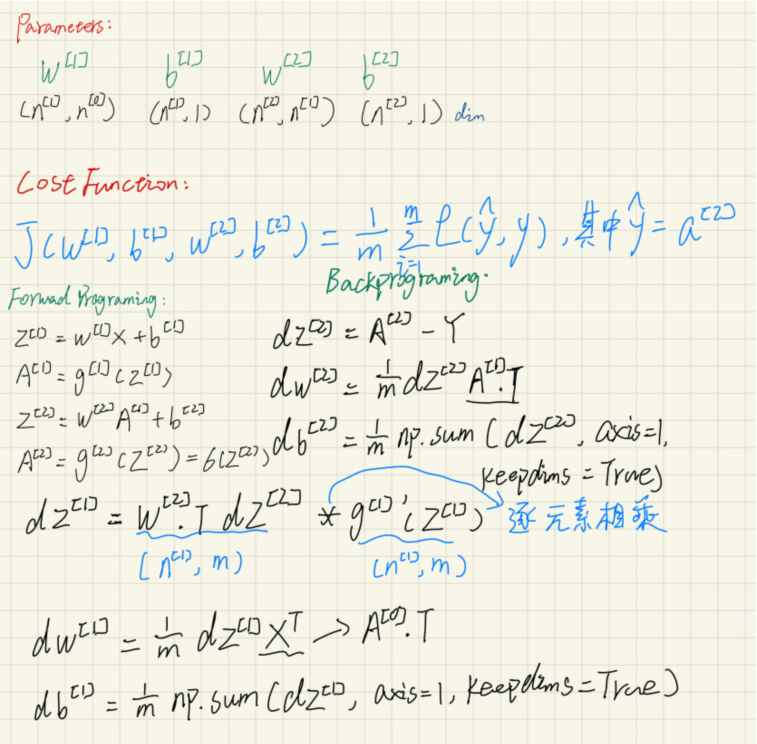 Parameters:
W^[1] b^[1] W^[2] b^[2]
(n^[1], n^[0]) (n^[1], 1) (n^[2], n^[1]) (n^[2], 1) dim
Cost Function:
J(W^[1], b^[1], W^[2], b^[2]) = 1/m Σ_{i=1}^{m} L(ŷ, y), 其中 ŷ = a^[2]
Forward Programing:
Z^[1] = W^[1]X + b^[1]
A^[1] = g^[1](Z^[1])
Z^[2] = W^[2]A^[1] + b^[2]
A^[2] = g^[2](Z^[2]) = 6(Z^[2])
Backprograming.
dZ^[2] = A^[2] - Y
dW^[2] = 1/m dZ^[2] A^[1].T
db^[2] = 1/m np.sum(dZ^[2], axis=1,
keepdims = True)
dZ^[1] = W^[2].T dZ^[2] * g^[1]'(Z^[1]) → 逐元素相乘
(n^[1], m) (n^[1], m)
dW^[1] = 1/m dZ^[1] X^T → A^[0].T
db^[1] = 1/m np.sum(dZ^[1], axis=1, keepdims=True)